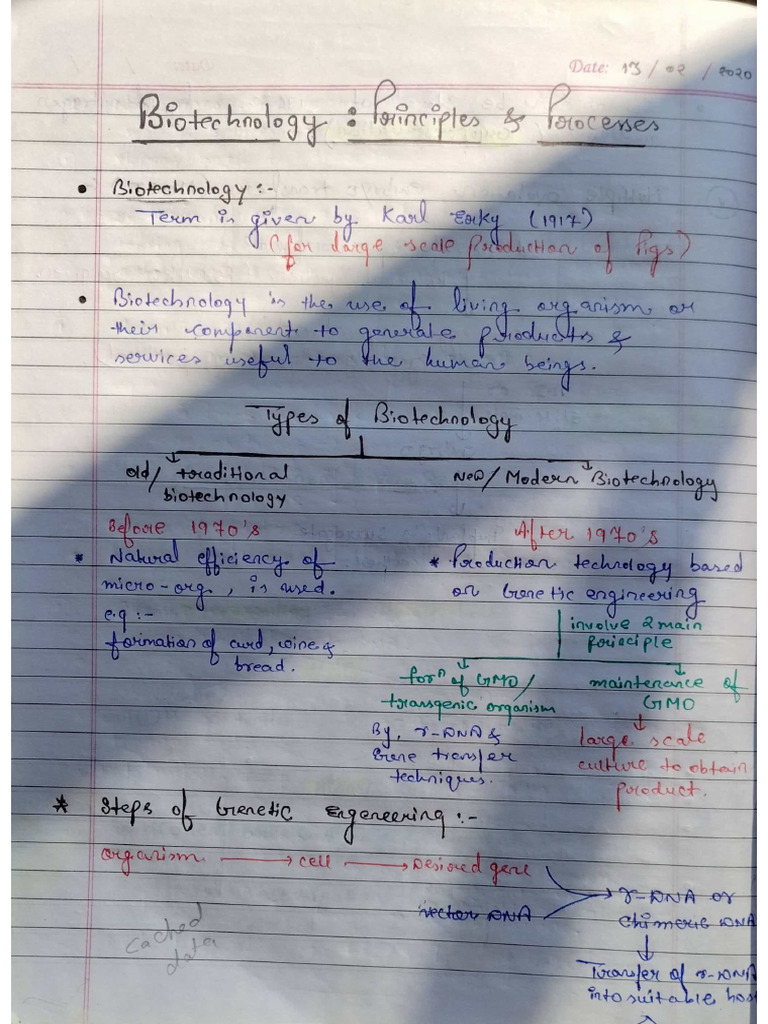 Date: 13 / 02 / 2020
Biotechnology : Principles & Processes
• Biotechnology :-
Term is given by Karl Erky (1917)
(for large scale production of Pigs)
• Biotechnology is the use of living organism or
their component to generate products &
services useful to the human beings.
Types of Biotechnology
old/traditional
biotechnology
New/Modern Biotechnology
Before 1970's
After 1970's
* Natural efficiency of
micro-org, is used.
e.g :-
formation of curd, wine &
bread.
* Production technology based
on Genetic engineering
involve 2 main
principle
forⁿ of GMO/
transgenic organism
maintenance of
GMO
By, r-DNA &
Gene transfer
techniques.
large scale
culture to obtain
product.
* Steps of Genetic Engeneering :-
organism → cell → Desired gene
vector DNA
r-DNA or
chimeric DNA
Transfer of r-DNA
into suitable hos
cached
data